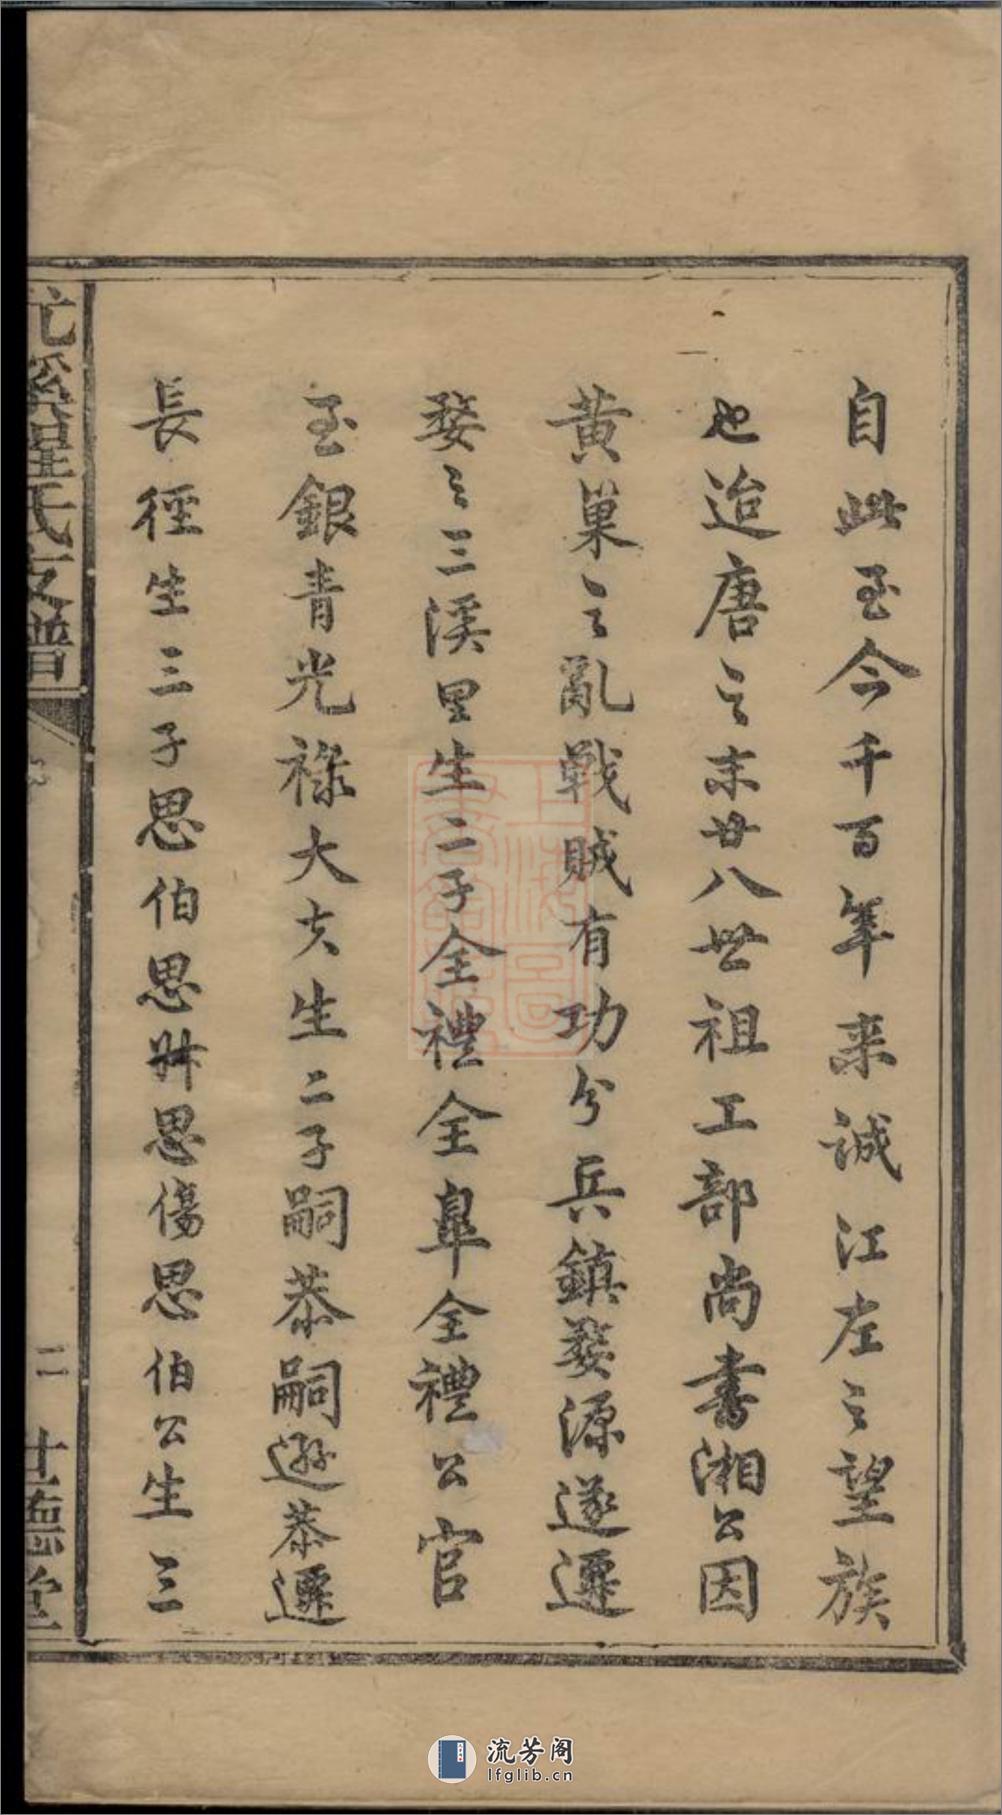 自此至今千百年来誠江左之望族
也迨唐之末廿八世祖工部尚書湘公因
黄巢之亂戦賊有功分兵鎮婺源遂遷
婺之三溪里生二子全禮全臯全禮公官
至銀青光禄大夫生二子嗣恭嗣遜恭遷
長徑生三子思伯思叔思傷思伯公生三
溪程氏支譜
二
世德堂
上海圖書館藏
流芳阁
lfglib.cn